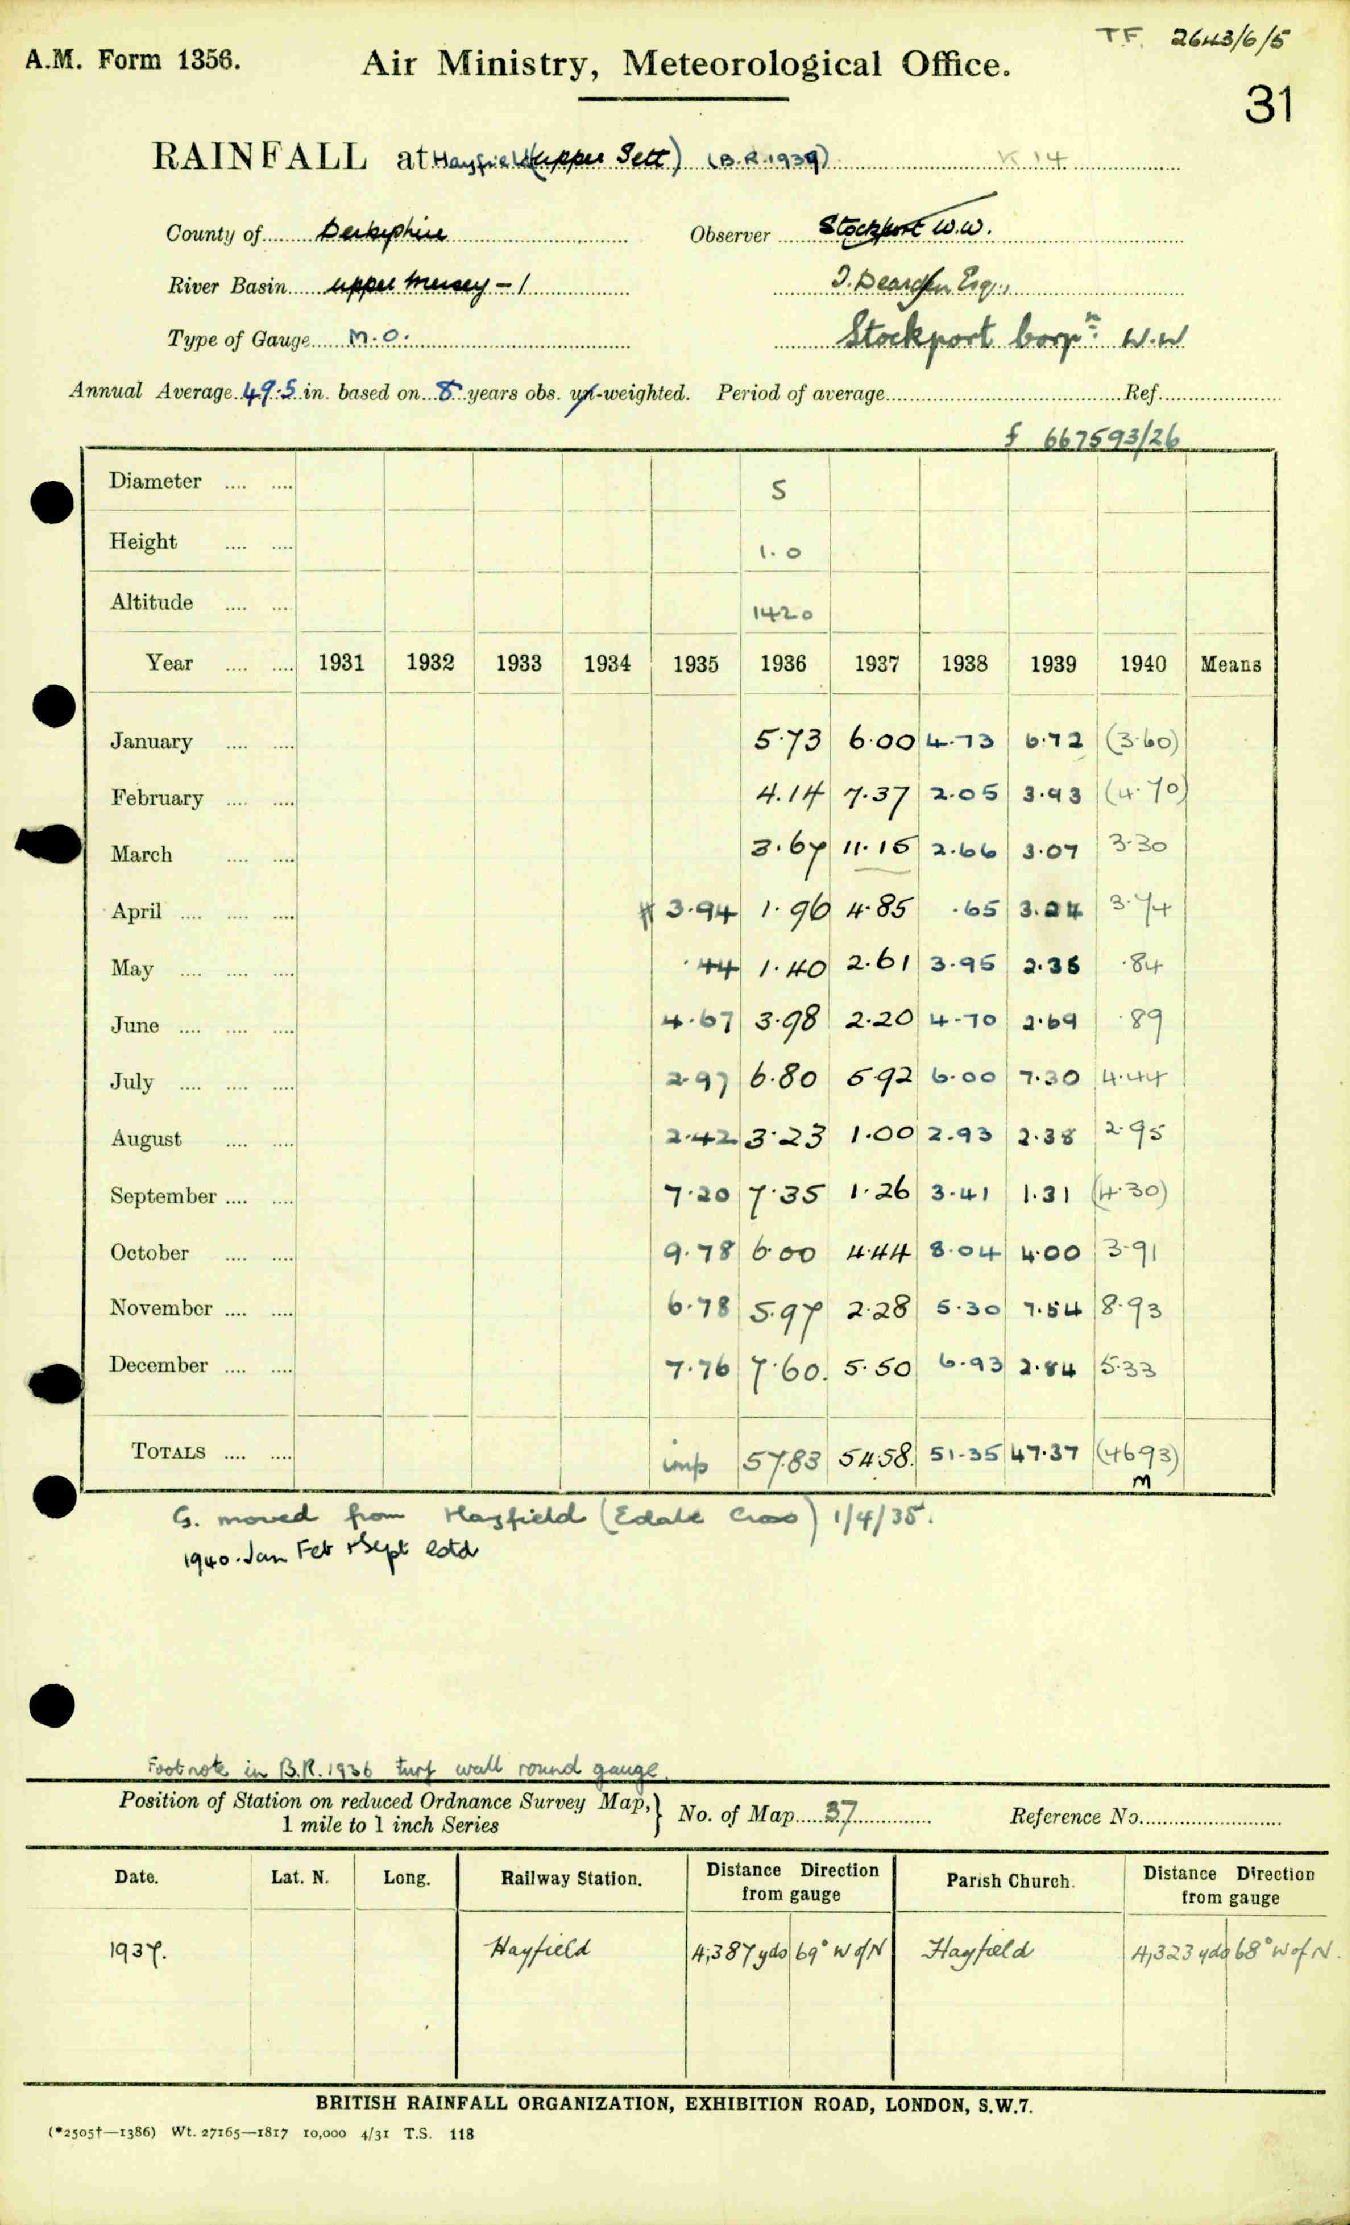 T.F. 2643/6/5
A.M. Form 1356. Air Ministry, Meteorological Office.
31
RAINFALL at Hayfield (upper Sett) (B.R. 1939) K 14
County of Derbyshire Observer Stockport W.W.
River Basin upper Mersey – 1 Esq.,
Type of Gauge M.O. Stockport Corpn. W.W
Annual Average 49.5 in. based on 8 years obs. un-weighted. Period of average Ref.
667593/26
Diameter .... .... 5
Height .... .... 1.0
Altitude .... .... 1420
Year .... .... 1931 1932 1933 1934 1935 1936 1937 1938 1939 1940 Means
January .... .... 5.73 6.00 4.73 6.72 (3.60)
February .... .... 4.14 7.37 2.05 3.93 (4.70)
March .... .... 3.67 11.15 2.66 3.07 3.30
April .... .... .... 3.94 1.96 4.85 .65 3.24 3.74
May .... .... .... .44 1.40 2.61 3.95 2.35 .84
June .... .... .... 4.67 3.98 2.20 4.70 2.69 .89
July .... .... .... 2.97 6.80 5.92 6.00 7.30 4.44
August .... .... 2.42 3.23 1.00 2.93 2.38 2.95
September .... .... 7.20 7.35 1.26 3.41 1.31 (4.30)
October .... .... 9.78 6.00 4.44 8.04 4.00 3.91
November .... .... 6.78 5.97 2.28 5.30 7.54 8.93
December .... .... 7.76 7.60. 5.50 6.93 2.84 5.33
TOTALS .... .... imp 57.83 54.58. 51.35 47.37 (46.93)
m
G. moved from Hayfield (Edale Cross) 1/4/35.
1940. Jan Feb & Sept estd
Footnote in B.R. 1936 turf wall round gauge.
Position of Station on reduced Ordnance Survey Map, } No. of Map 37 Reference No.
1 mile to 1 inch Series
Date. Lat. N. Long. Railway Station. Distance Direction from gauge Parish Church. Distance Direction from gauge
1937. Hayfield 4,387 yds 69° W of N Hayfield 4,323 yds 68° W of N.
BRITISH RAINFALL ORGANIZATION, EXHIBITION ROAD, LONDON, S.W.7.
(*2505†—1386) Wt. 27165—1817 10,000 4/31 T.S. 118